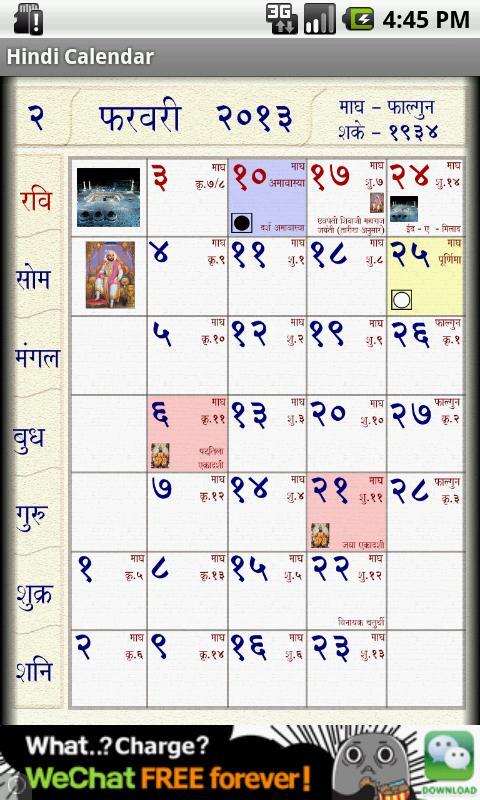 3G 4:45 PM
Hindi Calendar
२ फरवरी २०१३ माघ - फाल्गुन
शके - १९३४
रवि
३ माघ कृ.७/८
१० माघ अमावास्या
दर्श अमावास्या
१७ माघ शु.७
छत्रपती शिवाजी महाराज
जयंती (तारीख अनुसार)
२४ माघ शु.१४
ईद - ए - मिलाद
सोम
४ माघ कृ.९
११ माघ शु.१
१८ माघ शु.८
२५ माघ पूर्णिमा
मंगल
५ माघ कृ.१०
१२ माघ शु.२
१९ माघ शु.९
२६ फाल्गुन कृ.१
बुध
६ माघ कृ.११
षट्तिला
एकादशी
१३ माघ शु.३
२० माघ शु.१०
२७ फाल्गुन कृ.२
गुरु
७ माघ कृ.१२
१४ माघ शु.४
२१ माघ शु.११
जया एकादशी
२८ फाल्गुन कृ.३
शुक्र
१ माघ कृ.५
८ माघ कृ.१३
१५ माघ शु.५
२२ माघ शु.१२
विनायक चतुर्थी
शनि
२ माघ कृ.६
९ माघ कृ.१४
१६ माघ शु.६
२३ माघ शु.१३
What..? Charge?
WeChat FREE forever!
DOWNLOAD